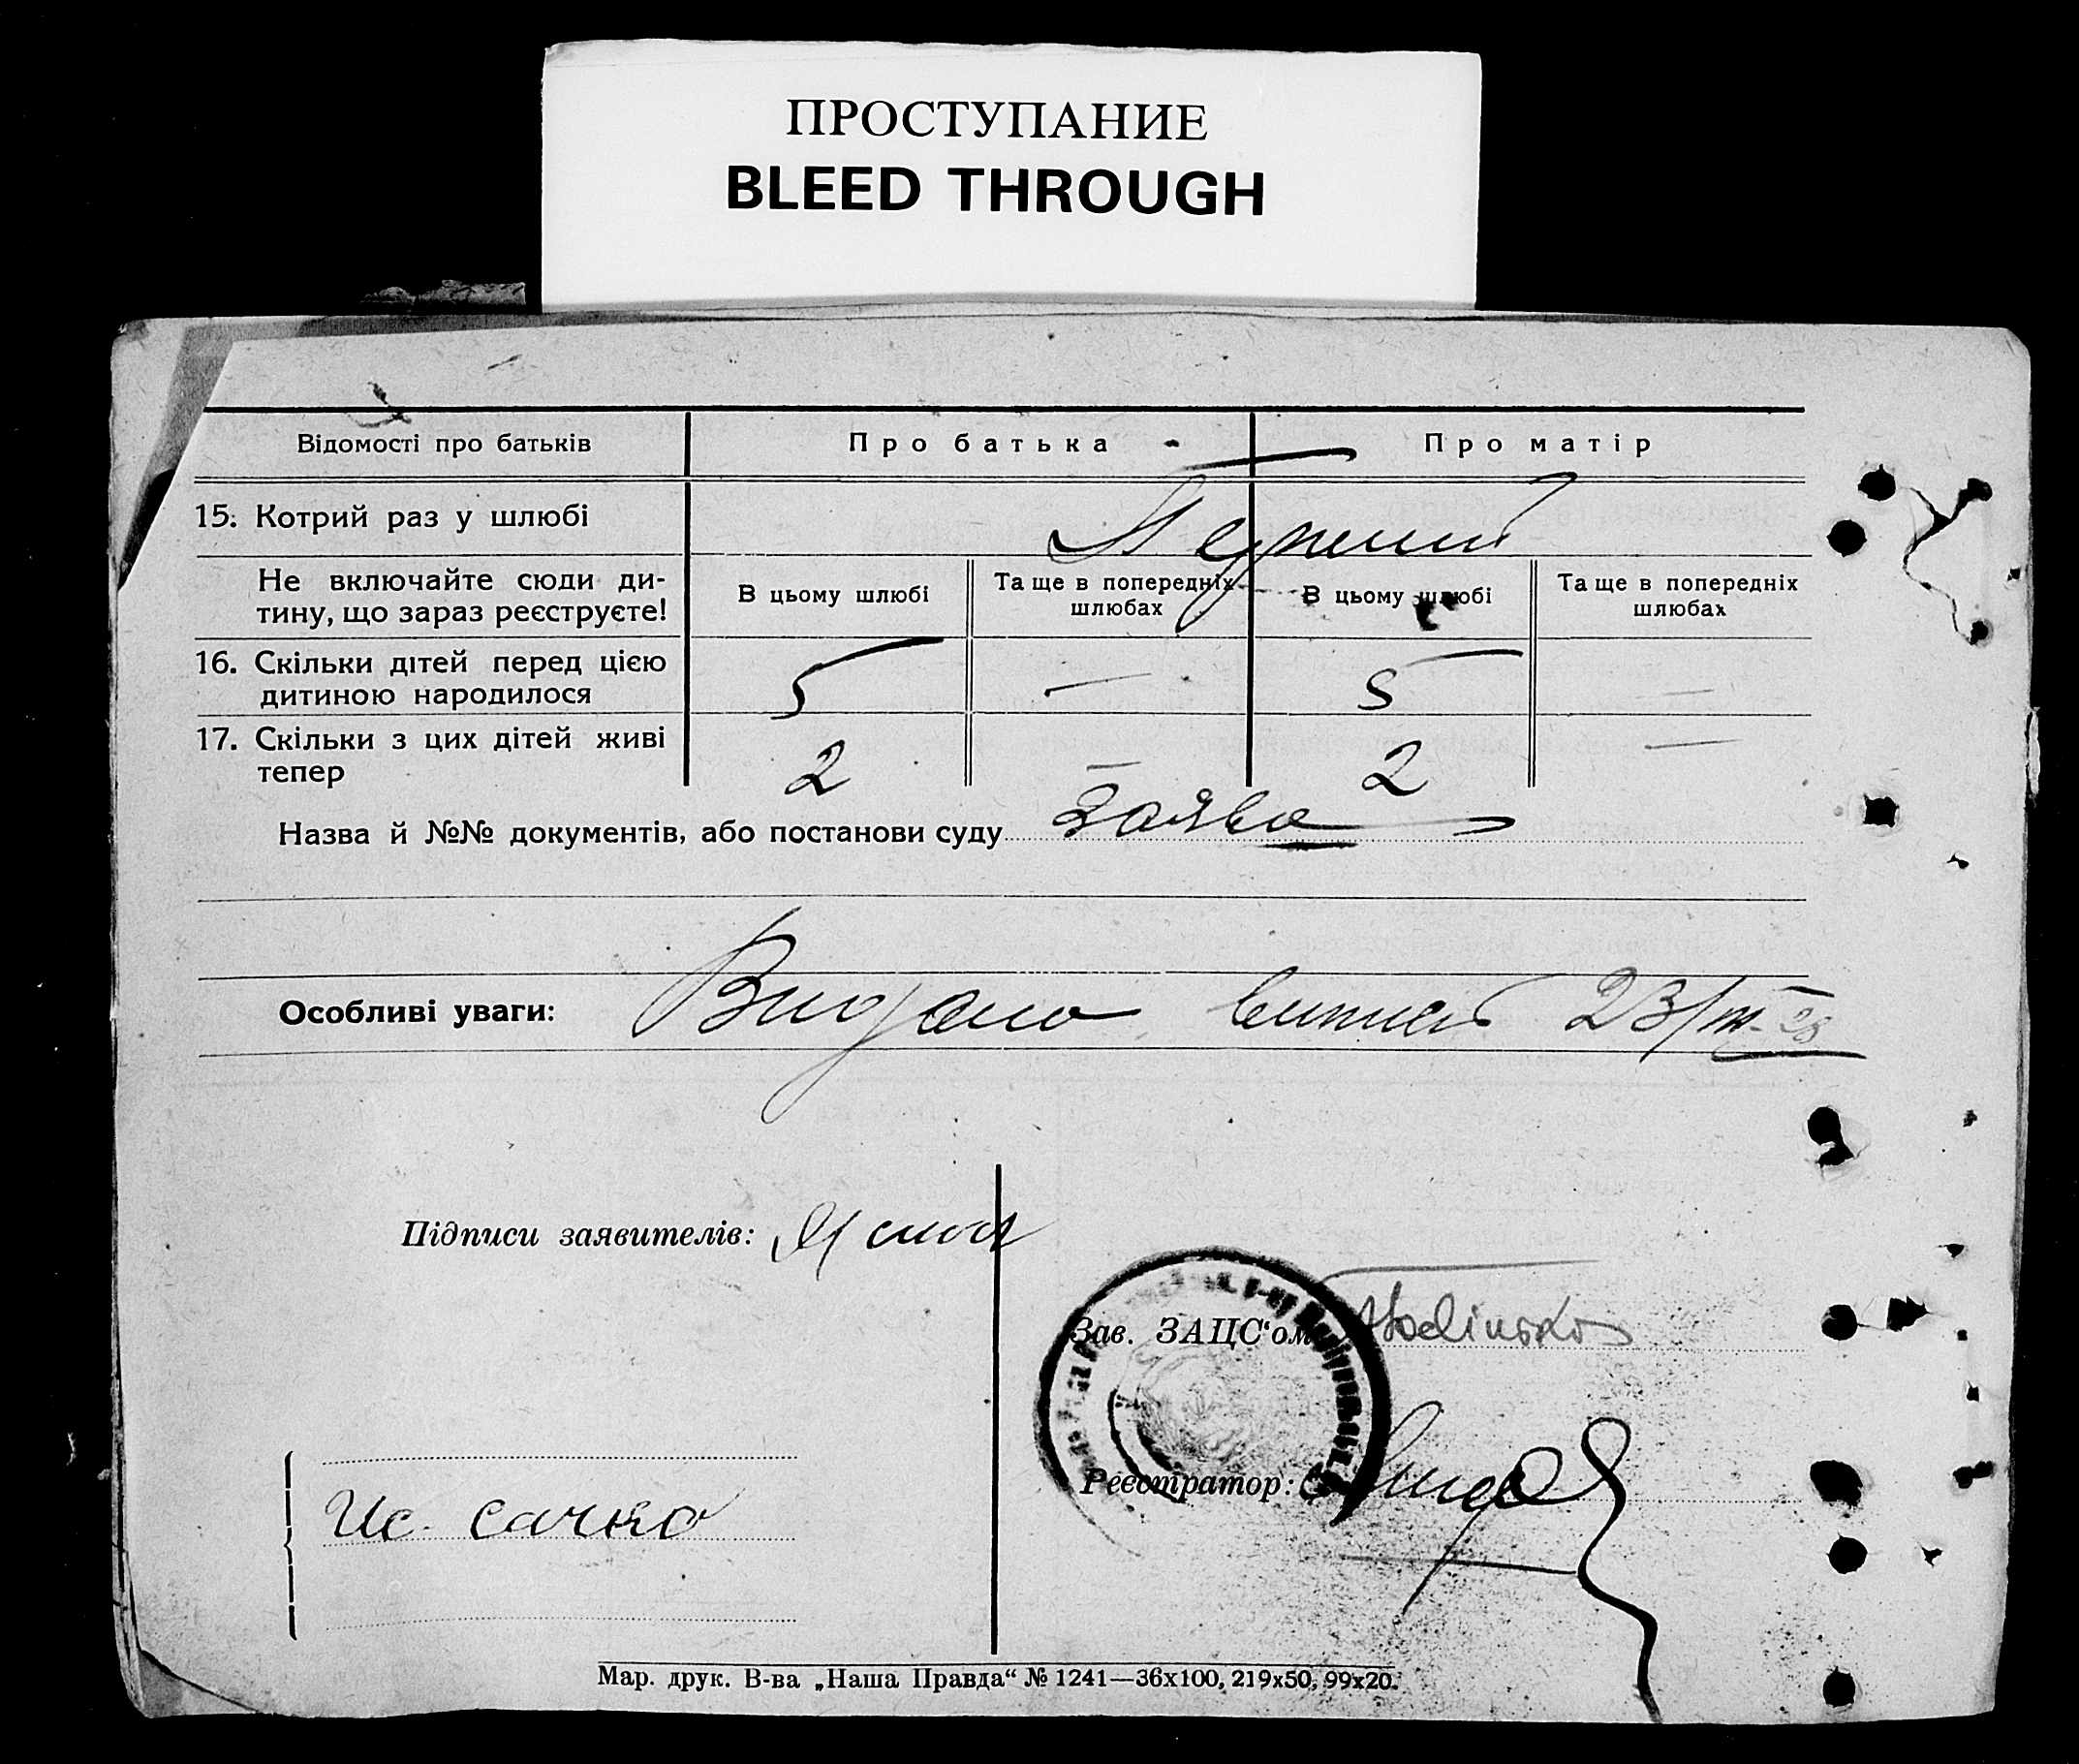 ПРОСТУПАНИЕ
BLEED THROUGH
Відомості про батьків
Про батька
Про матір
15. Котрий раз у шлюбі
Первий
Не включайте сюди ди-
тину, що зараз реєструєте!
В цьому шлюбі
Та ще в попередніх
шлюбах
В цьому шлюбі
Та ще в попередніх
шлюбах
16. Скільки дітей перед цією
дитиною народилося
5 — 5 —
17. Скільки з цих дітей живі
тепер
2 — 2 —
Назва й №№ документів, або постанови суду Заява
Особливі уваги: Видано 23/III-28
Підписи заявителів:
Зав. ЗАЦС‘ом
Реєстратор:
Мар. друк. В-ва „Наша Правда“ № 1241—36х100, 219х50, 99х20.